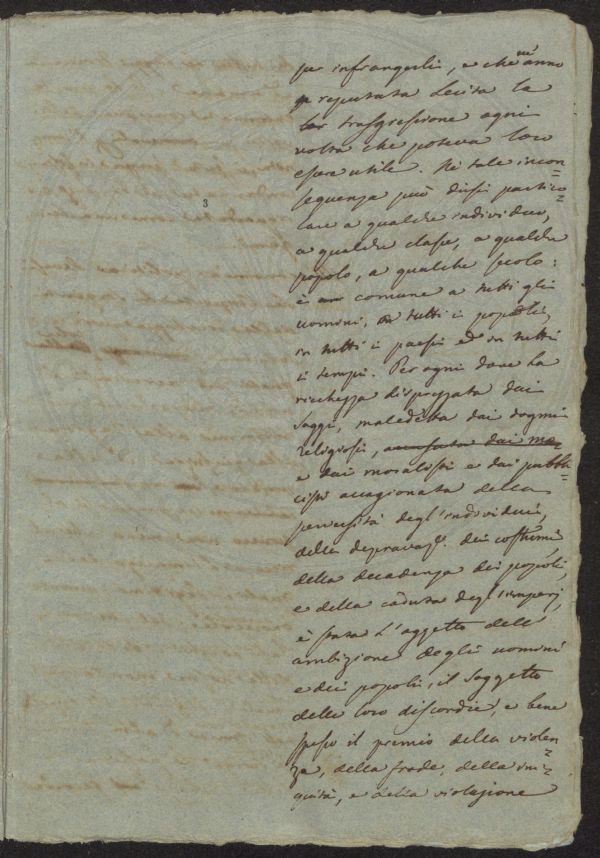 per infrangerli, e che n'anno
reputata lecita la
trasgressione ogni
volta che poteva loro
essere utile. Nè tale incon=
seguenza può dirsi partico=
lare a qualche individuo,
a qualche classe, a qualche
popolo, a qualche secolo:
è comune a tutti gli
uomini, a tutti i popoli,
in tutti i paesi ed in tutti
i tempi. Per ogni dove la
ricchezza disprezzata dai
saggi, maledetta dai dogmi
religiosi, accusata dai mo
e dai moralisti e dai pubbli=
cisti accagionata della
perversità degl'individui,
della depravaz.e dei costumi,
della decadenza dei popoli,
e della caduta degl'imperj,
è stata l'oggetto dell'
ambizione degli uomini
e dei popoli, il soggetto
delle loro discordie, e bene
spesso il premio della violen=
za, della frode, della ini=
quità, e della violazione
3